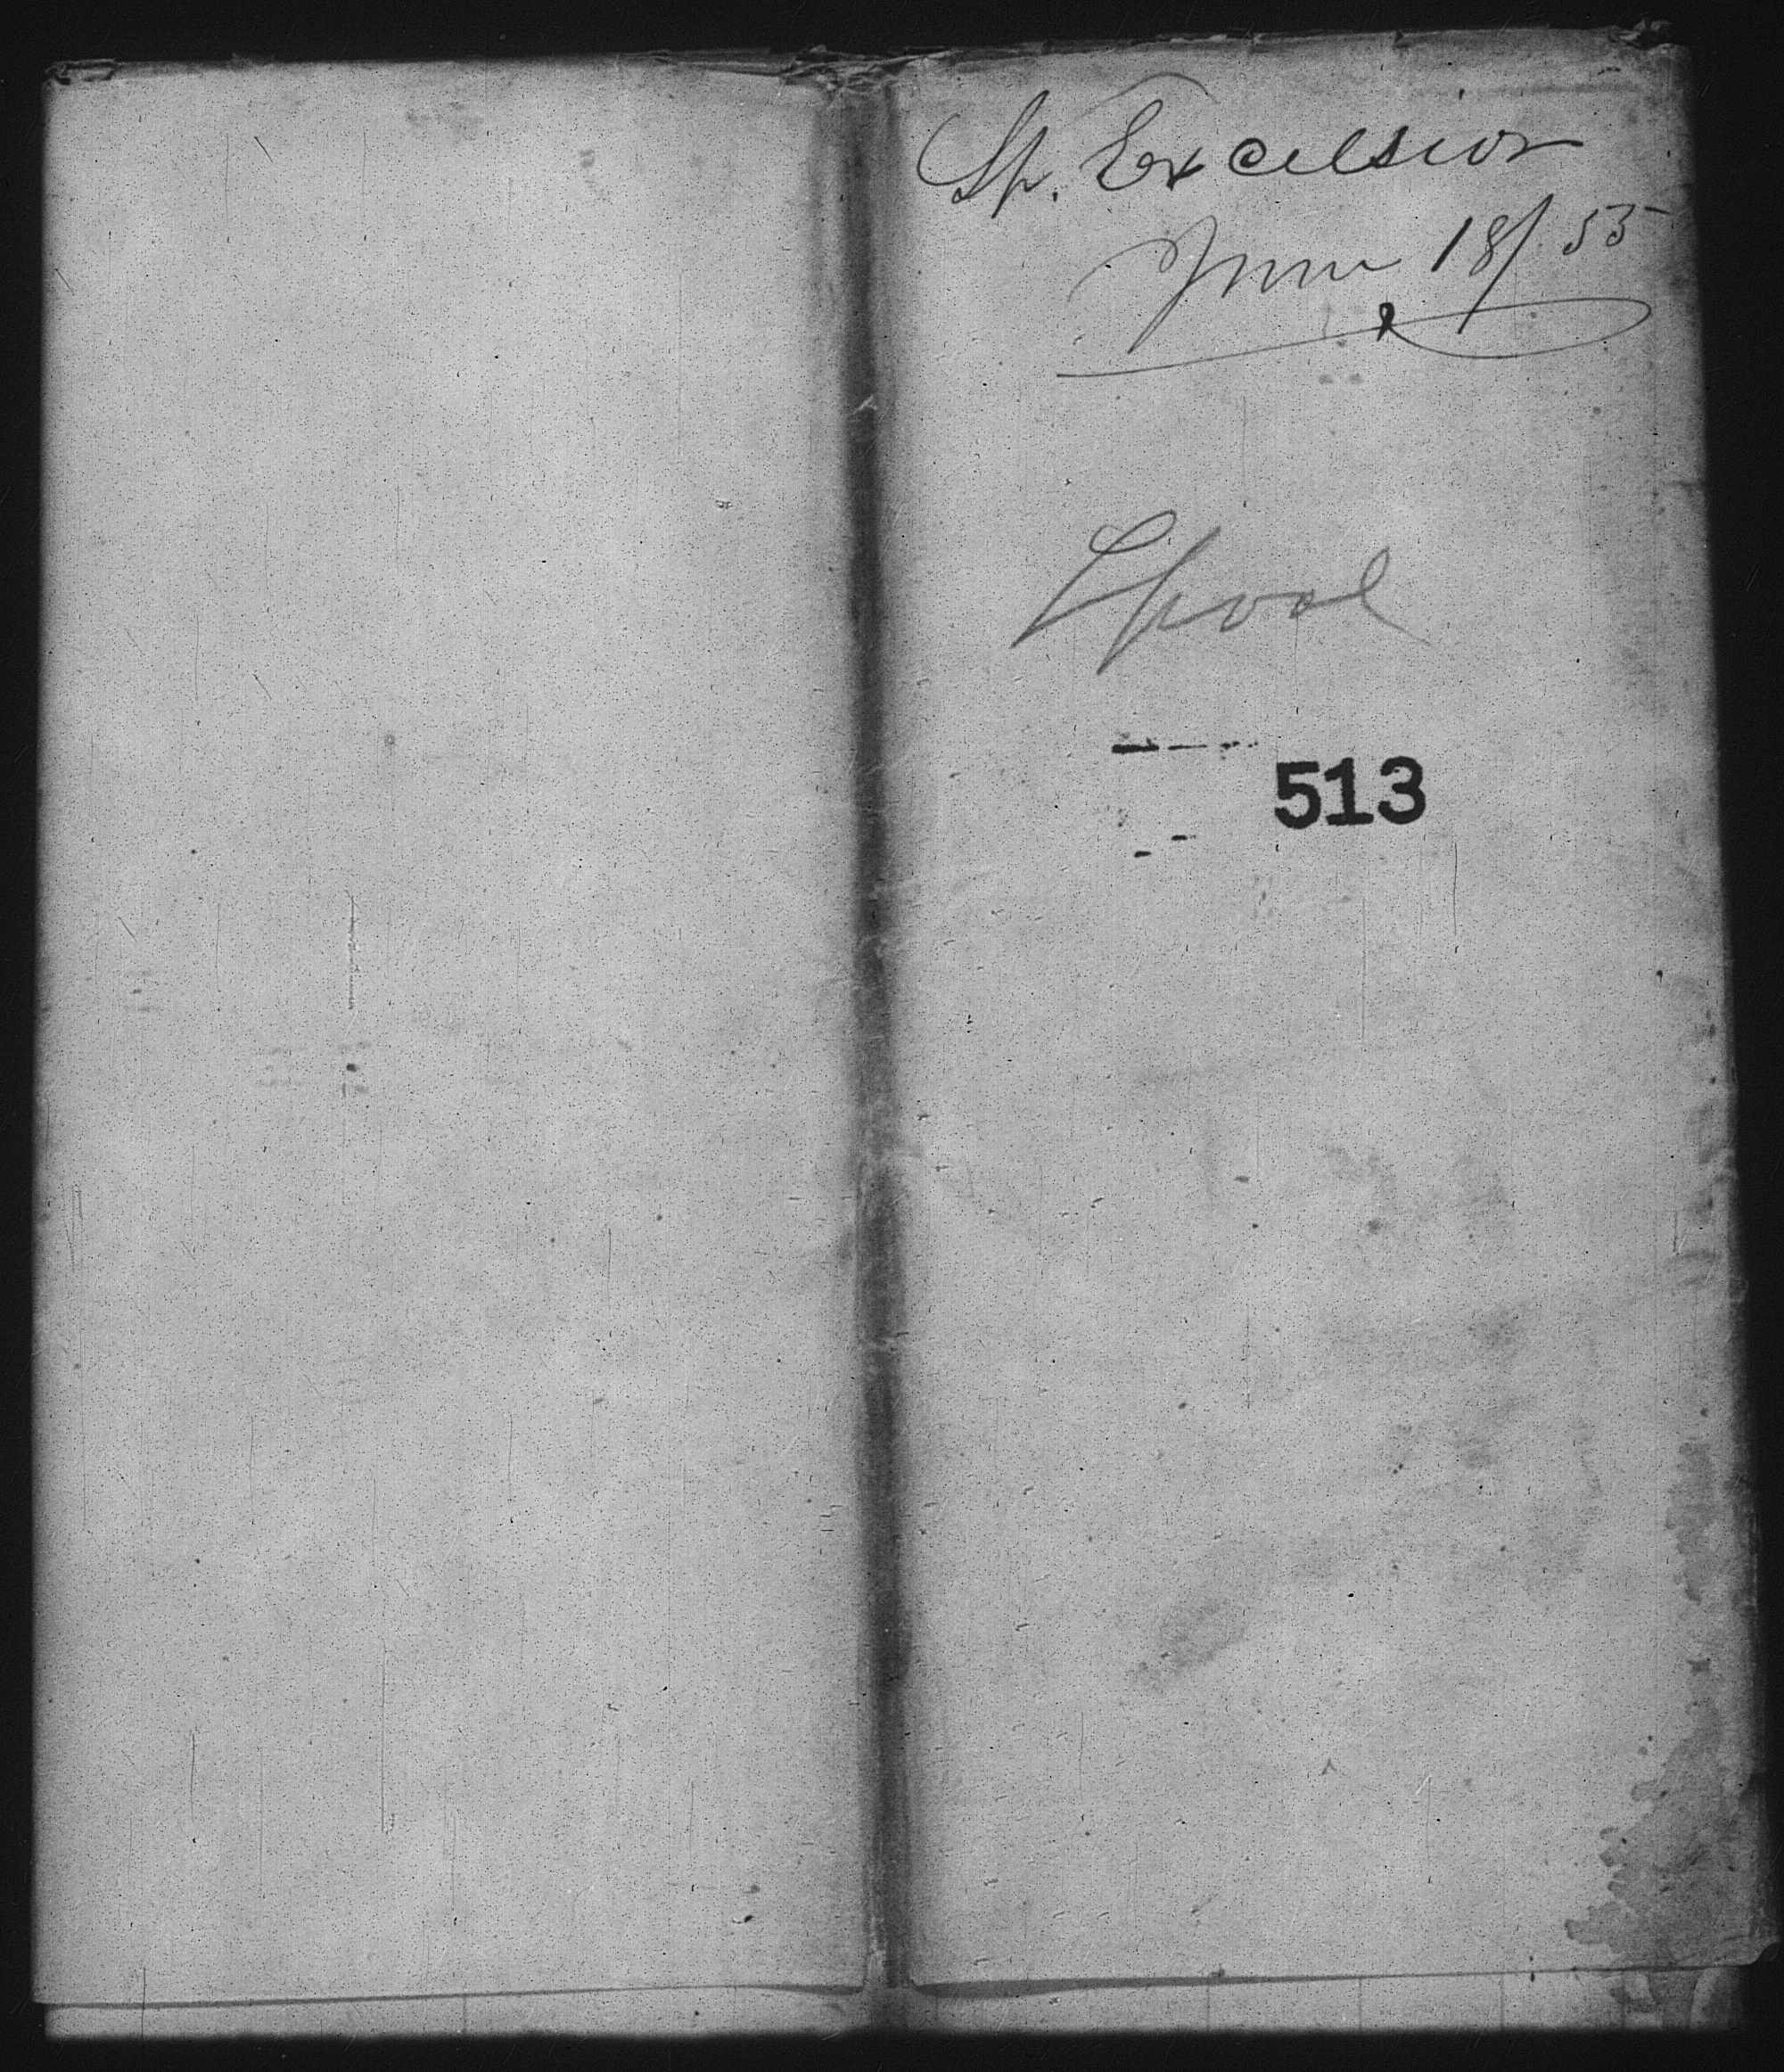 Sp. Excelsior
June 18/55
Lpool
513